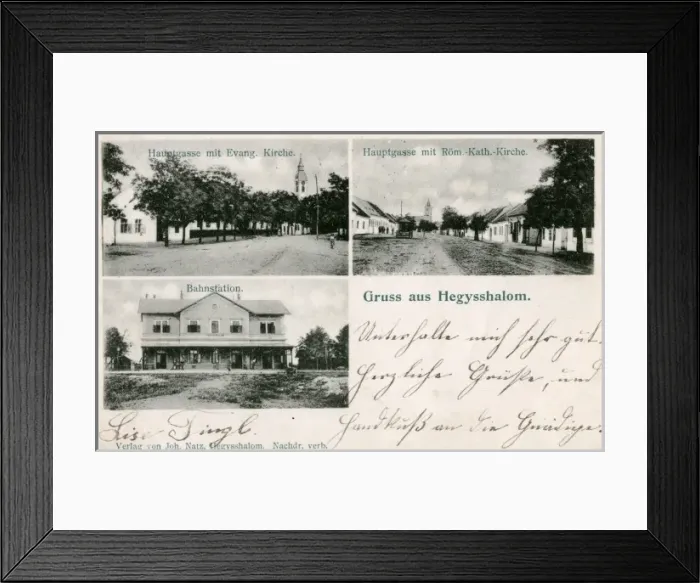 Hauptgasse mit Evang. Kirche.
Hauptgasse mit Röm.-Kath.-Kirche.
Bahnstation.
Gruss aus Hegysshalom.
Unterhalte mich sehr gut.
Herzliche Grüße, und
Handkuß an die Gnädige.
Lisa
Verlag von Joh. Natz, Hegysshalom. Nachdr. verb.